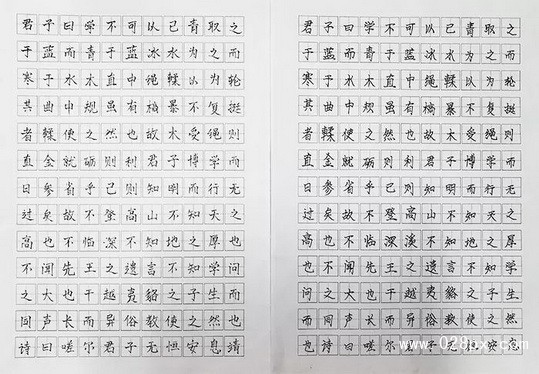 君子曰学不可以已青取之
于蓝而青于蓝冰水为之而
寒于水木直中绳輮以为轮
其曲中规虽有槁暴不复挺
者輮使之然也故木受绳则
直金就砺则利君子博学而
日参省乎己则知明而行无
过矣故不登高山不知天之
高也不临深不知地之厚也
不闻先王之遗言不知学问
之大也干越夷貉之子生而
同声长而异俗教使之然也
诗曰嗟尔君子无恒安息靖
君子曰学不可以已青取之
于蓝而青于蓝冰水为之而
寒于水木直中绳輮以为轮
其曲中规虽有槁暴不复挺
者輮使之然也故木受绳则
直金就砺则利君子博学而
日参省乎己则知明而行无
过矣故不登高山不知天之
高也不临深溪不知地之厚
也不闻先王之遗言不知学
问之大也干越夷貉之子生
而同声长而异俗教使之然
也诗曰嗟尔君子无恒安息